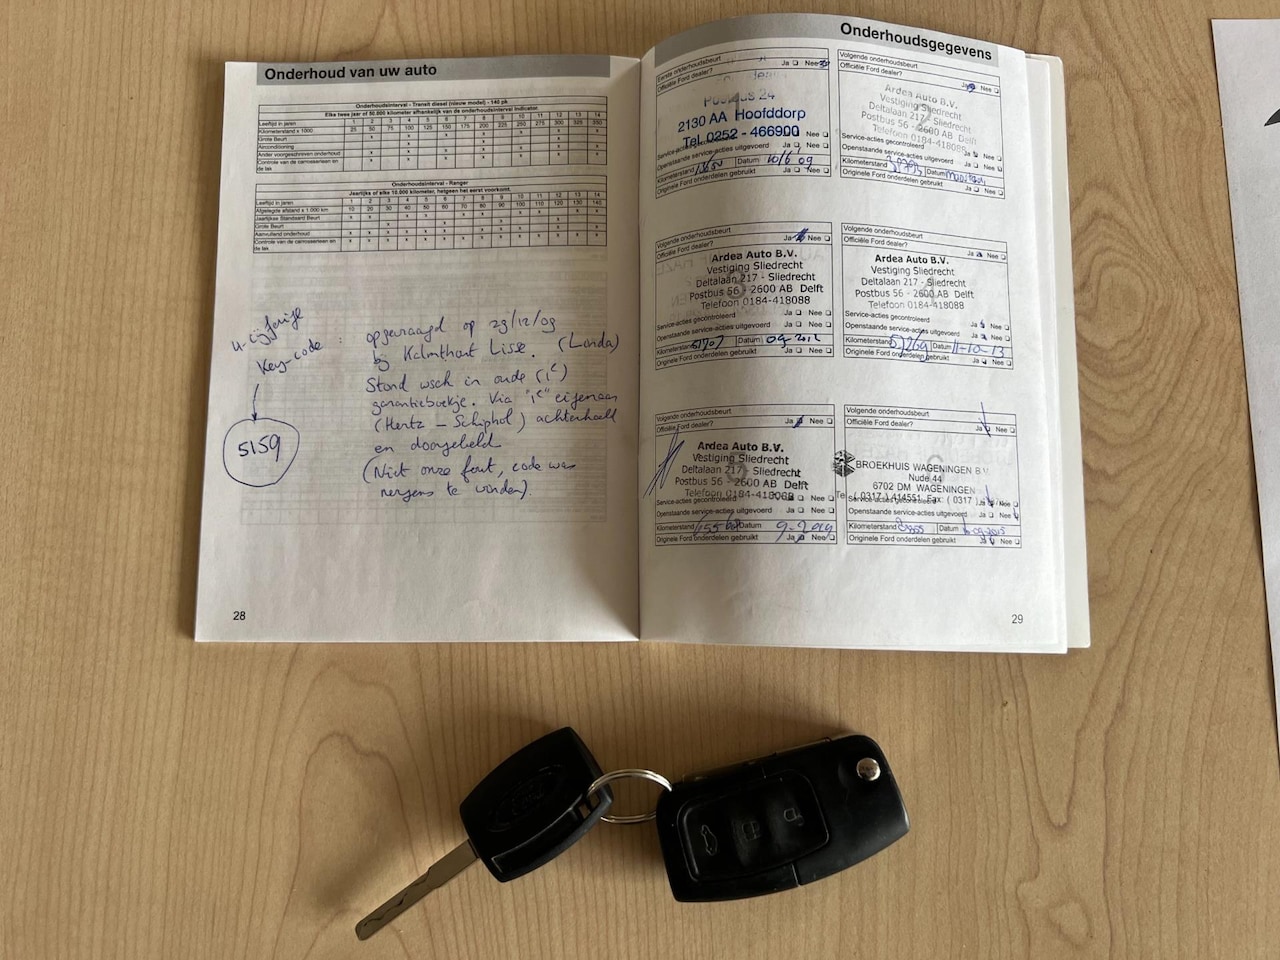 Onderhoud van uw auto
Onderhoudsinterval - Transit diesel (nieuw model) - 140 pk
Elke twee jaar of 50.000 kilometer afhankelijk van de onderhoudsinterval indicator
Leeftijd in jaren 1 2 3 4 5 6 7 8 9 10 11 12 13 14
Kilometerstand x 1000 25 50 75 100 125 150 175 200 225 250 275 300 325 350
Grote Beurt
Airconditioning
Ander voorgeschreven onderhoud
Controle van de carrosserie en
de lak
Onderhoudsinterval - Ranger
Jaarlijks of elke 10.000 kilometer, hetgeen het eerst voorkomt.
Leeftijd in jaren 1 2 3 4 5 6 7 8 9 10 11 12 13 14
Afgelegde afstand x 1.000 km 10 20 30 40 50 60 70 80 90 100 110 120 130 140
Jaarlijkse Standaard Beurt
Grote Beurt
Aanvullend onderhoud
Controle van de carrosserie en
de lak
4-cijferige
Key-code :
5159
opgevraagd op 23/12/09
bij Kalmthout Lisse. (Linda)
Stond wsch in oude (1e)
garantieboekje. Via "1e" eigenaar
(Hertz - Schiphol) achterhaald
en doorgebeld
(Niet onze fout, code was
nergens te vinden).
28
Onderhoudsgegevens
Eerste onderhoudsbeurt Ja Nee
Officiële Ford dealer?
Postbus 24
2130 AA Hoofddorp
Tel. 0252 - 466900 Nee
Openstaande service-acties uitgevoerd Ja Nee
Kilometerstand Datum 10/6 09
Originele Ford onderdelen gebruikt Ja Nee
Volgende onderhoudsbeurt
Officiële Ford dealer? Ja Nee
Ardea Auto B.V.
Vestiging Sliedrecht
Deltalaan 217 - Sliedrecht
Postbus 56 - 2600 AB Delft
Telefoon 0184-418088
Service-acties gecontroleerd Ja Nee
Openstaande service-acties uitgevoerd Ja Nee
Kilometerstand Datum
Originele Ford onderdelen gebruikt Ja Nee
Volgende onderhoudsbeurt Ja Nee
Officiële Ford dealer?
Ardea Auto B.V.
Vestiging Sliedrecht
Deltalaan 217 - Sliedrecht
Postbus 56 - 2600 AB Delft
Telefoon 0184-418088
Service-acties gecontroleerd Ja Nee
Openstaande service-acties uitgevoerd Ja Nee
Kilometerstand 51707 Datum
Originele Ford onderdelen gebruikt Ja Nee
Volgende onderhoudsbeurt
Officiële Ford dealer? Ja Nee
Ardea Auto B.V.
Vestiging Sliedrecht
Deltalaan 217 - Sliedrecht
Postbus 56 - 2600 AB Delft
Telefoon 0184-418088
Service-acties gecontroleerd
Openstaande service-acties uitgevoerd Ja Nee
Kilometerstand Datum 11-10-13
Originele Ford onderdelen gebruikt Ja Nee
Volgende onderhoudsbeurt
Officiële Ford dealer? Ja Nee
Ardea Auto B.V.
Vestiging Sliedrecht
Deltalaan 217 - Sliedrecht
Postbus 56 - 2600 AB Delft
Telefoon 0184-418088
Service-acties gecontroleerd Ja Nee
Openstaande service-acties uitgevoerd Ja Nee
Kilometerstand Datum
Originele Ford onderdelen gebruikt Ja Nee
Volgende onderhoudsbeurt
Officiële Ford dealer? Ja Nee
BROEKHUIS WAGENINGEN B.V.
Nude 44
6702 DM WAGENINGEN
Tel. (0317) 414551 Fax: (0317)
Service-acties gecontroleerd Ja Nee
Openstaande service-acties uitgevoerd Ja Nee
Kilometerstand Datum
Originele Ford onderdelen gebruikt Ja Nee
29